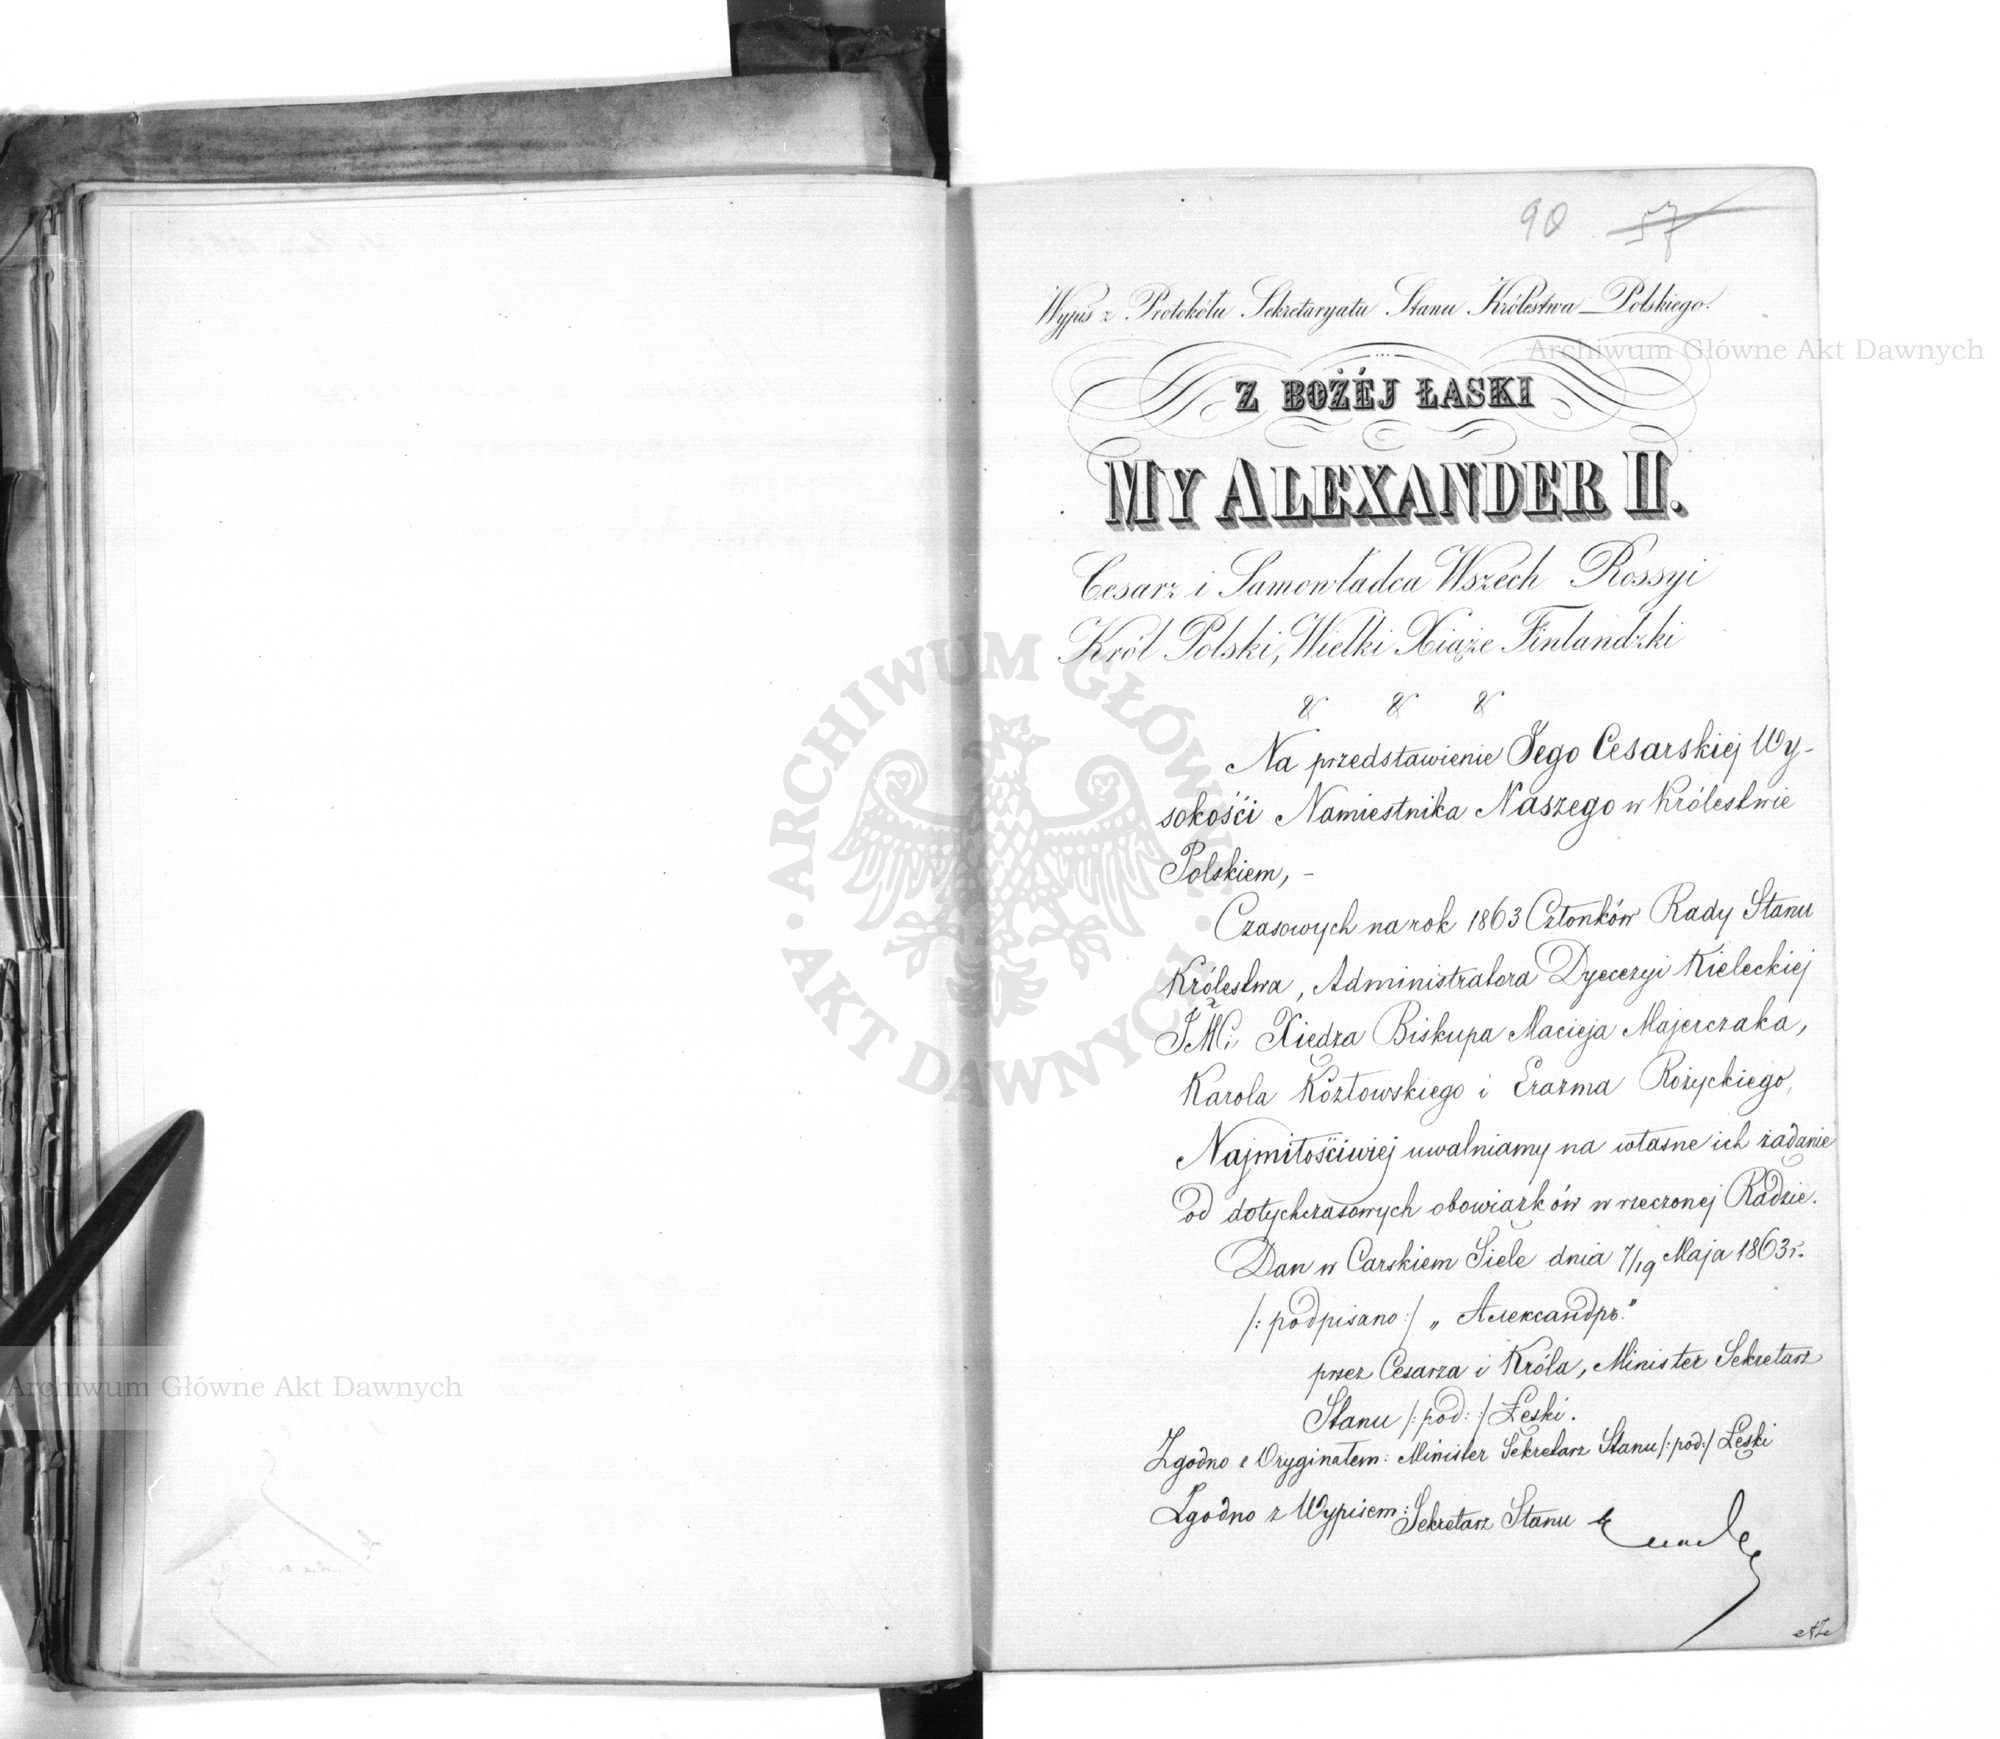 90 57
Wypis z Protokółu Sekretaryatu Stanu Królestwa Polskiego.
Z BOŻÉJ ŁASKI
MY ALEXANDER II.
Cesarz i Samowładca Wszech Rossyi
Król Polski, Wielki Xiąże Finlandzki
& & &
Na przedstawienie Jego Cesarskiej Wy-
sokości Namiestnika Naszego w Królestwie
Polskiem, –
Czasowych na rok 1863 Członków Rady Stanu
Królestwa, Administratora Dyecezyi Kieleckiej
JMCi Xiędza Biskupa Macieja Majerczaka,
Karola Kozłowskiego i Erazma Różyckiego,
Najmiłościwiej uwalniamy na własne ich żądanie
od dotychczasowych obowiązków w rzeczonej Radzie.
Dan w Carskiem Siele dnia 7/19 Maja 1863 r.
/: podpisano :/ „Александръ."
przez Cesarza i Króla, Minister Sekretarz
Stanu /: pod: :/ Łęski.
Zgodno z Oryginałem: Minister Sekretarz Stanu /: pod: / Łęski
Zgodno z Wypisem: Sekretarz Stanu
Archiwum Główne Akt Dawnych
ARCHIWUM GŁÓWNE · AKT DAWNYCH ·
Archiwum Główne Akt Dawnych